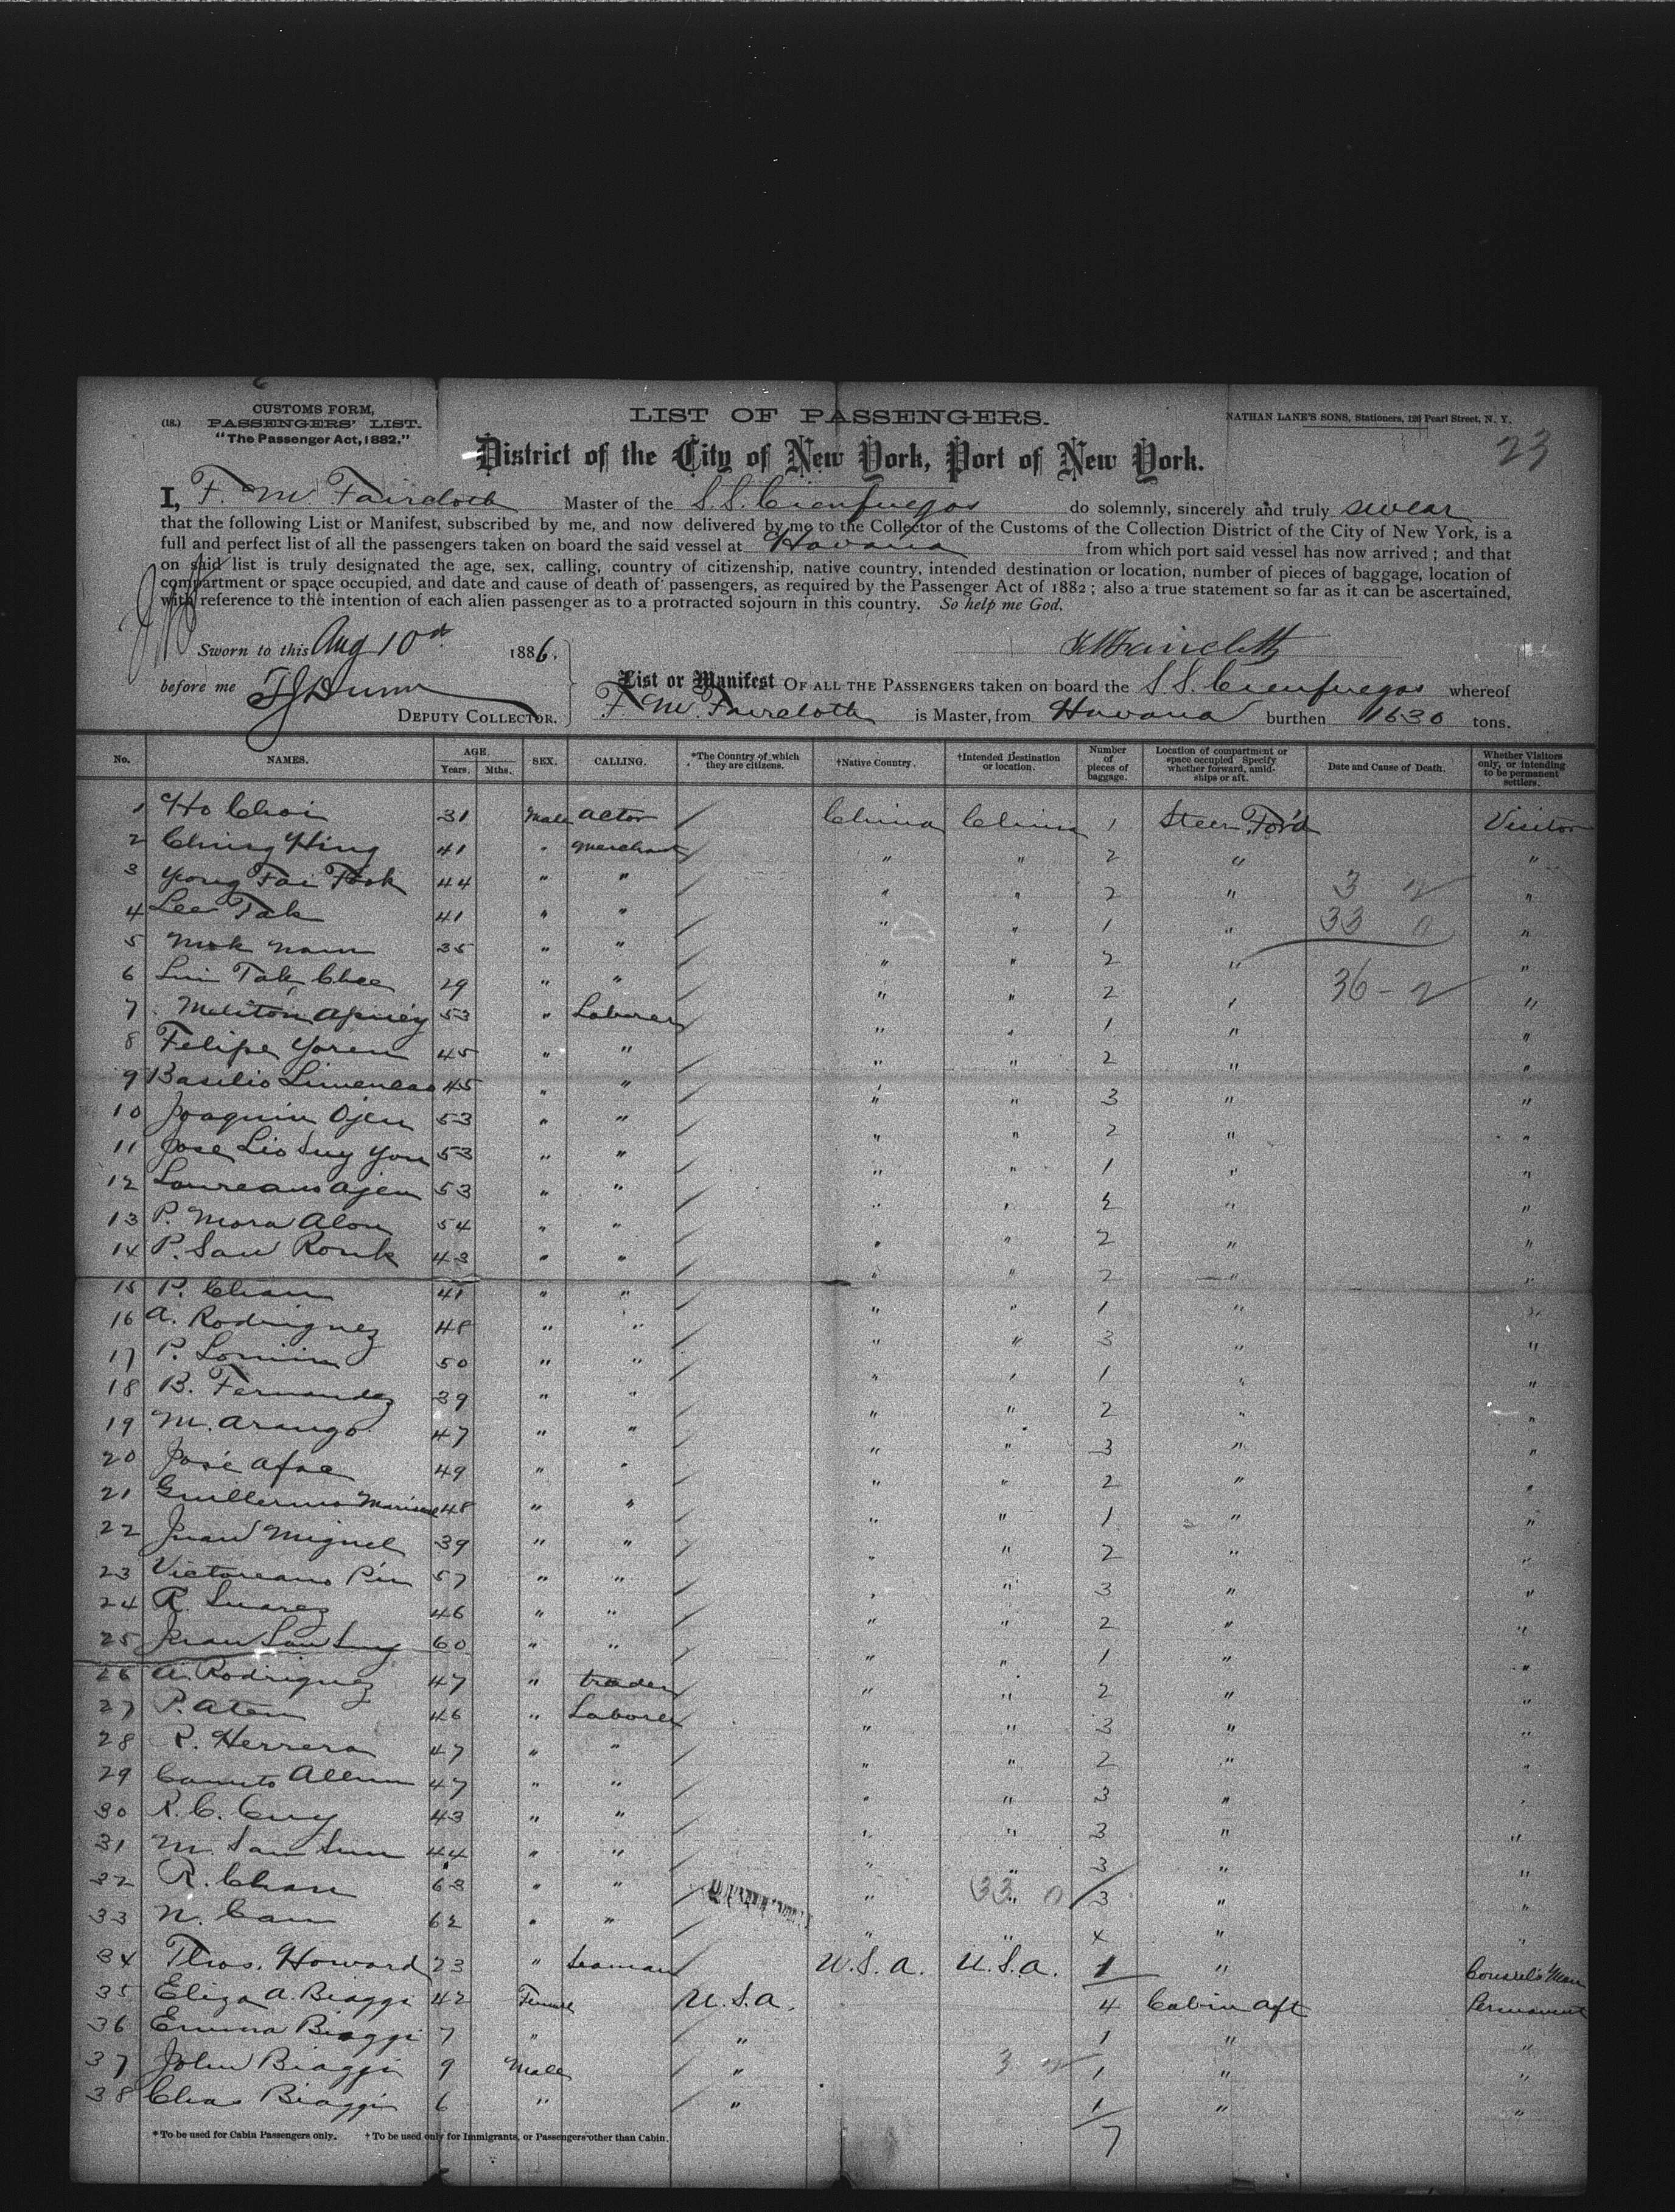 CUSTOMS FORM,
(18.) PASSENGERS' LIST.
"The Passenger Act, 1882."
LIST OF PASSENGERS.
NATHAN LANE'S SONS, Stationers, 126 Pearl Street, N. Y.
23
District of the City of New York, Port of New York.
I, F. M Faircloth Master of the S.S. Cienfuegos do solemnly, sincerely and truly swear
that the following List or Manifest, subscribed by me, and now delivered by me to the Collector of the Customs of the Collection District of the City of New York, is a
full and perfect list of all the passengers taken on board the said vessel at Havana from which port said vessel has now arrived; and that
on said list is truly designated the age, sex, calling, country of citizenship, native country, intended destination or location, number of pieces of baggage, location of
compartment or space occupied, and date and cause of death of passengers, as required by the Passenger Act of 1882; also a true statement so far as it can be ascertained,
with reference to the intention of each alien passenger as to a protracted sojourn in this country. So help me God.
Sworn to this Aug 10 1886.
F M Faircloth
before me T J Dunn
DEPUTY COLLECTOR.
List or Manifest OF ALL THE PASSENGERS taken on board the S.S. Cienfuegos whereof
F. M. Faircloth is Master, from Havana burthen 1630 tons.
No. NAMES. AGE. Years. Mths. SEX. CALLING. *The Country of which they are citizens. †Native Country. †Intended Destination or location. Number of pieces of baggage. Location of compartment or space occupied Specify whether forward, amidships or aft. Date and Cause of Death. Whether Visitors only, or intending to be permanent settlers.
1 Ho Choi 31 Male Actor / China China 1 Steer. For'd Visitor
2 Ching Hing 41 " Merchant / " " 2 " "
3 Yong Tai Fook 44 " " / " " 2 " 3 2 "
4 Lee Tak 41 " " / " " 1 " 33 0 "
5 Mok Nam 35 " " / " " 2 " "
6 Lui Tak Chee 29 " " / " " 2 " 36 - 2 "
7 Meliton 53 " Laborer / " " 1 " "
8 Felipe 45 " " / " " 2 " "
9 Basilio 45 " " / " " 3 " "
10 Joaquin Ojen 53 " " / " " 2 " "
11 Jose Lio Suy You 53 " " / " " 1 " "
12 Laureano Ajen 53 " " / " " 2 " "
13 P. Mora Alon 54 " " / " " 2 " "
14 P. Saw 43 " " / " " 2 " "
15 P. Chan 41 " " / " " 1 " "
16 A. Rodriguez 48 " " / " " 3 " "
17 P. 50 " " / " " 1 " "
18 B. Fernandez 39 " " / " " 2 " "
19 M. Arango 47 " " / " " 3 " "
20 José 49 " " / " " 2 " "
21 Guillermo 48 " " / " " 1 " "
22 Juan Miguel 39 " " / " " 2 " "
23 Victoreano 57 " " / " " 3 " "
24 R. Suarez 46 " " / " " 2 " "
25 Juan San 60 " " / " " 1 " "
26 A. Rodriguez 47 " trader / " " 2 " "
27 P. Aten 46 " Laborer / " " 3 " "
28 R. Herrera 47 " " / " " 2 " "
29 Canuto 47 " " / " " 3 " "
30 R. C. Cuy 43 " " / " " 3 " "
31 M. San 44 " " / " " 3 " "
32 R. Chan 63 " " / " 33 0 3 " "
33 N. Can 62 " " / " " x " "
34 Thos. Howard 23 " Seaman / U.S.A. U.S.A. 1 " Consul's Man
35 Eliza A. Biaggi 42 Female U.S.A. 4 Cabin Aft Permanent
36 Emma Biaggi 7 " " 1 " "
37 John Biaggi 9 Male " 3 2 1 " "
38 Chas Biaggi 6 " " 1 " "
7
*To be used for Cabin Passengers only. †To be used only for Immigrants, or Passengers other than Cabin.